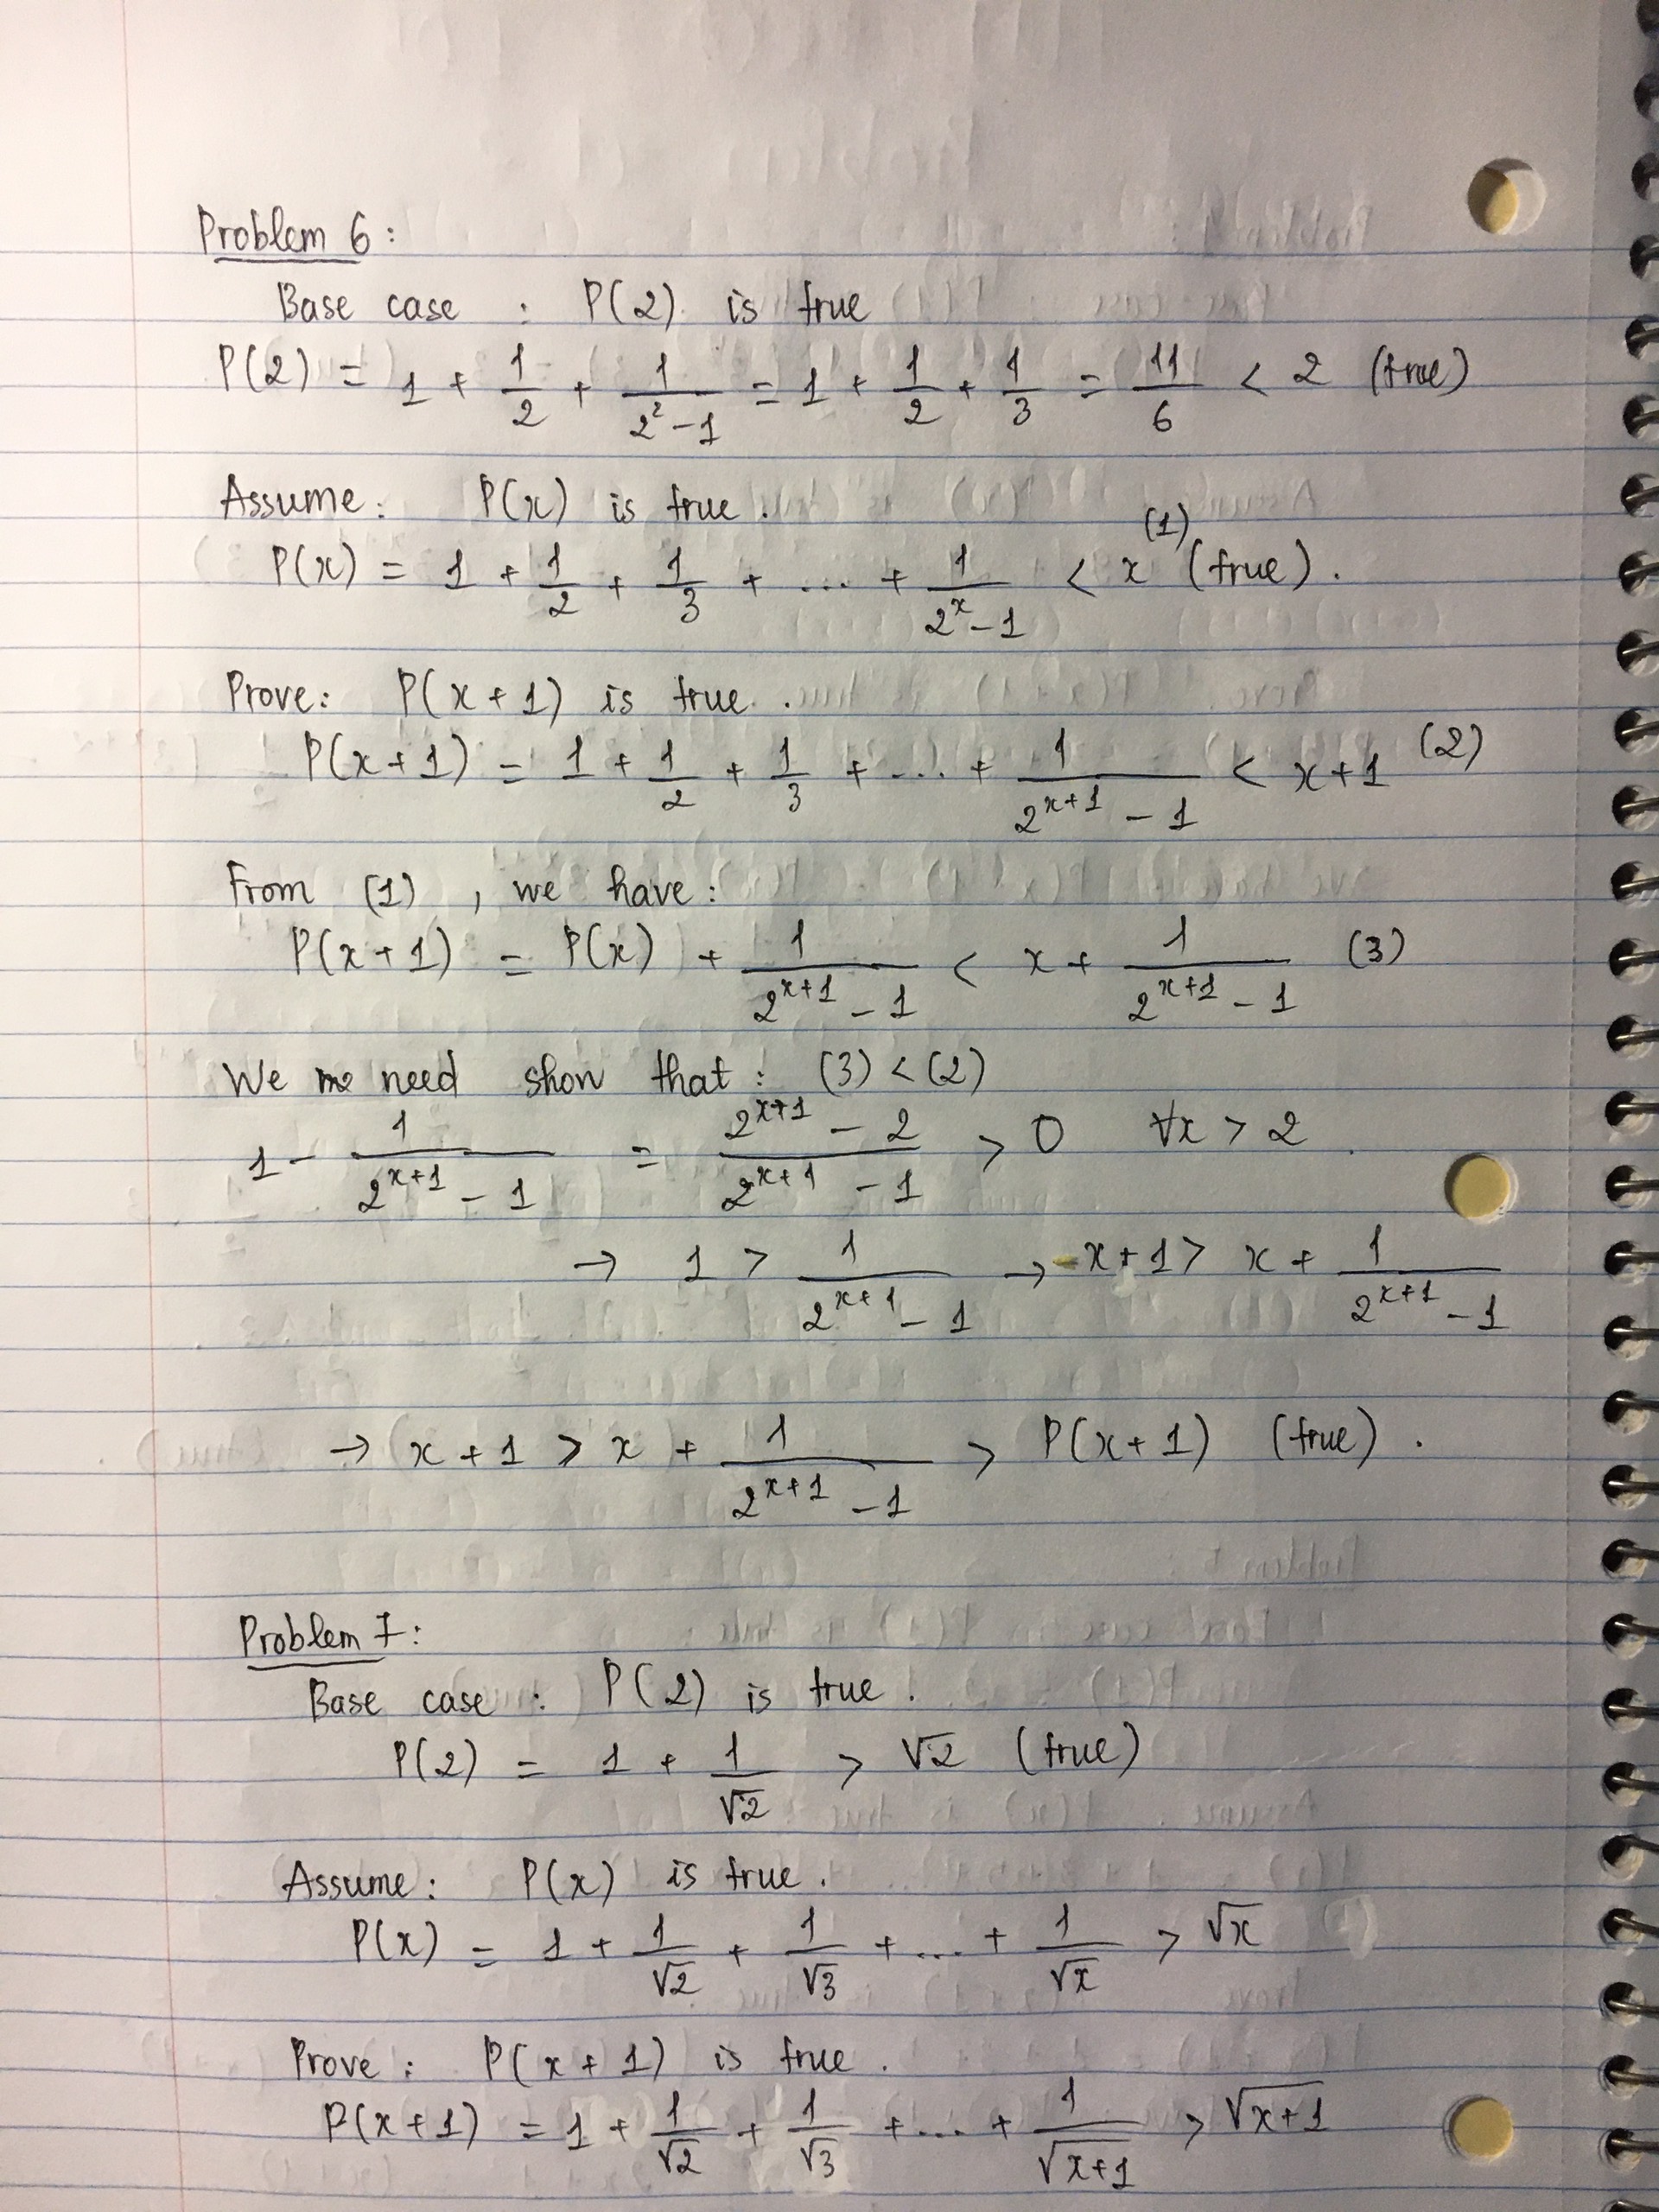 Problem 6:
Base case : P(2) is true
P(2) = 1 + 1/2 + 1/(2² - 1) = 1 + 1/2 + 1/3 = 11/6 < 2 (true)
Assume: P(x) is true.
P(x) = 1 + 1/2 + 1/3 + ... + 1/(2^x - 1) < x (1) (true).
Prove: P(x + 1) is true.
P(x + 1) = 1 + 1/2 + 1/3 + ... + 1/(2^(x+1) - 1) < x + 1 (2)
From (1), we have:
P(x + 1) = P(x) + 1/(2^(x+1) - 1) < x + 1/(2^(x+1) - 1) (3)
We need show that: (3) < (2)
1 - 1/(2^(x+1) - 1) = (2^(x+1) - 2)/(2^(x+1) - 1) > 0 ∀x > 2
→ 1 > 1/(2^(x+1) - 1) → x + 1 > x + 1/(2^(x+1) - 1)
→ x + 1 > x + 1/(2^(x+1) - 1) > P(x + 1) (true).
Problem 7:
Base case: P(2) is true.
P(2) = 1 + 1/√2 > √2 (true)
Assume: P(x) is true.
P(x) = 1 + 1/√2 + 1/√3 + ... + 1/√x > √x
Prove: P(x + 1) is true.
P(x + 1) = 1 + 1/√2 + 1/√3 + ... + 1/√(x+1) > √(x+1)